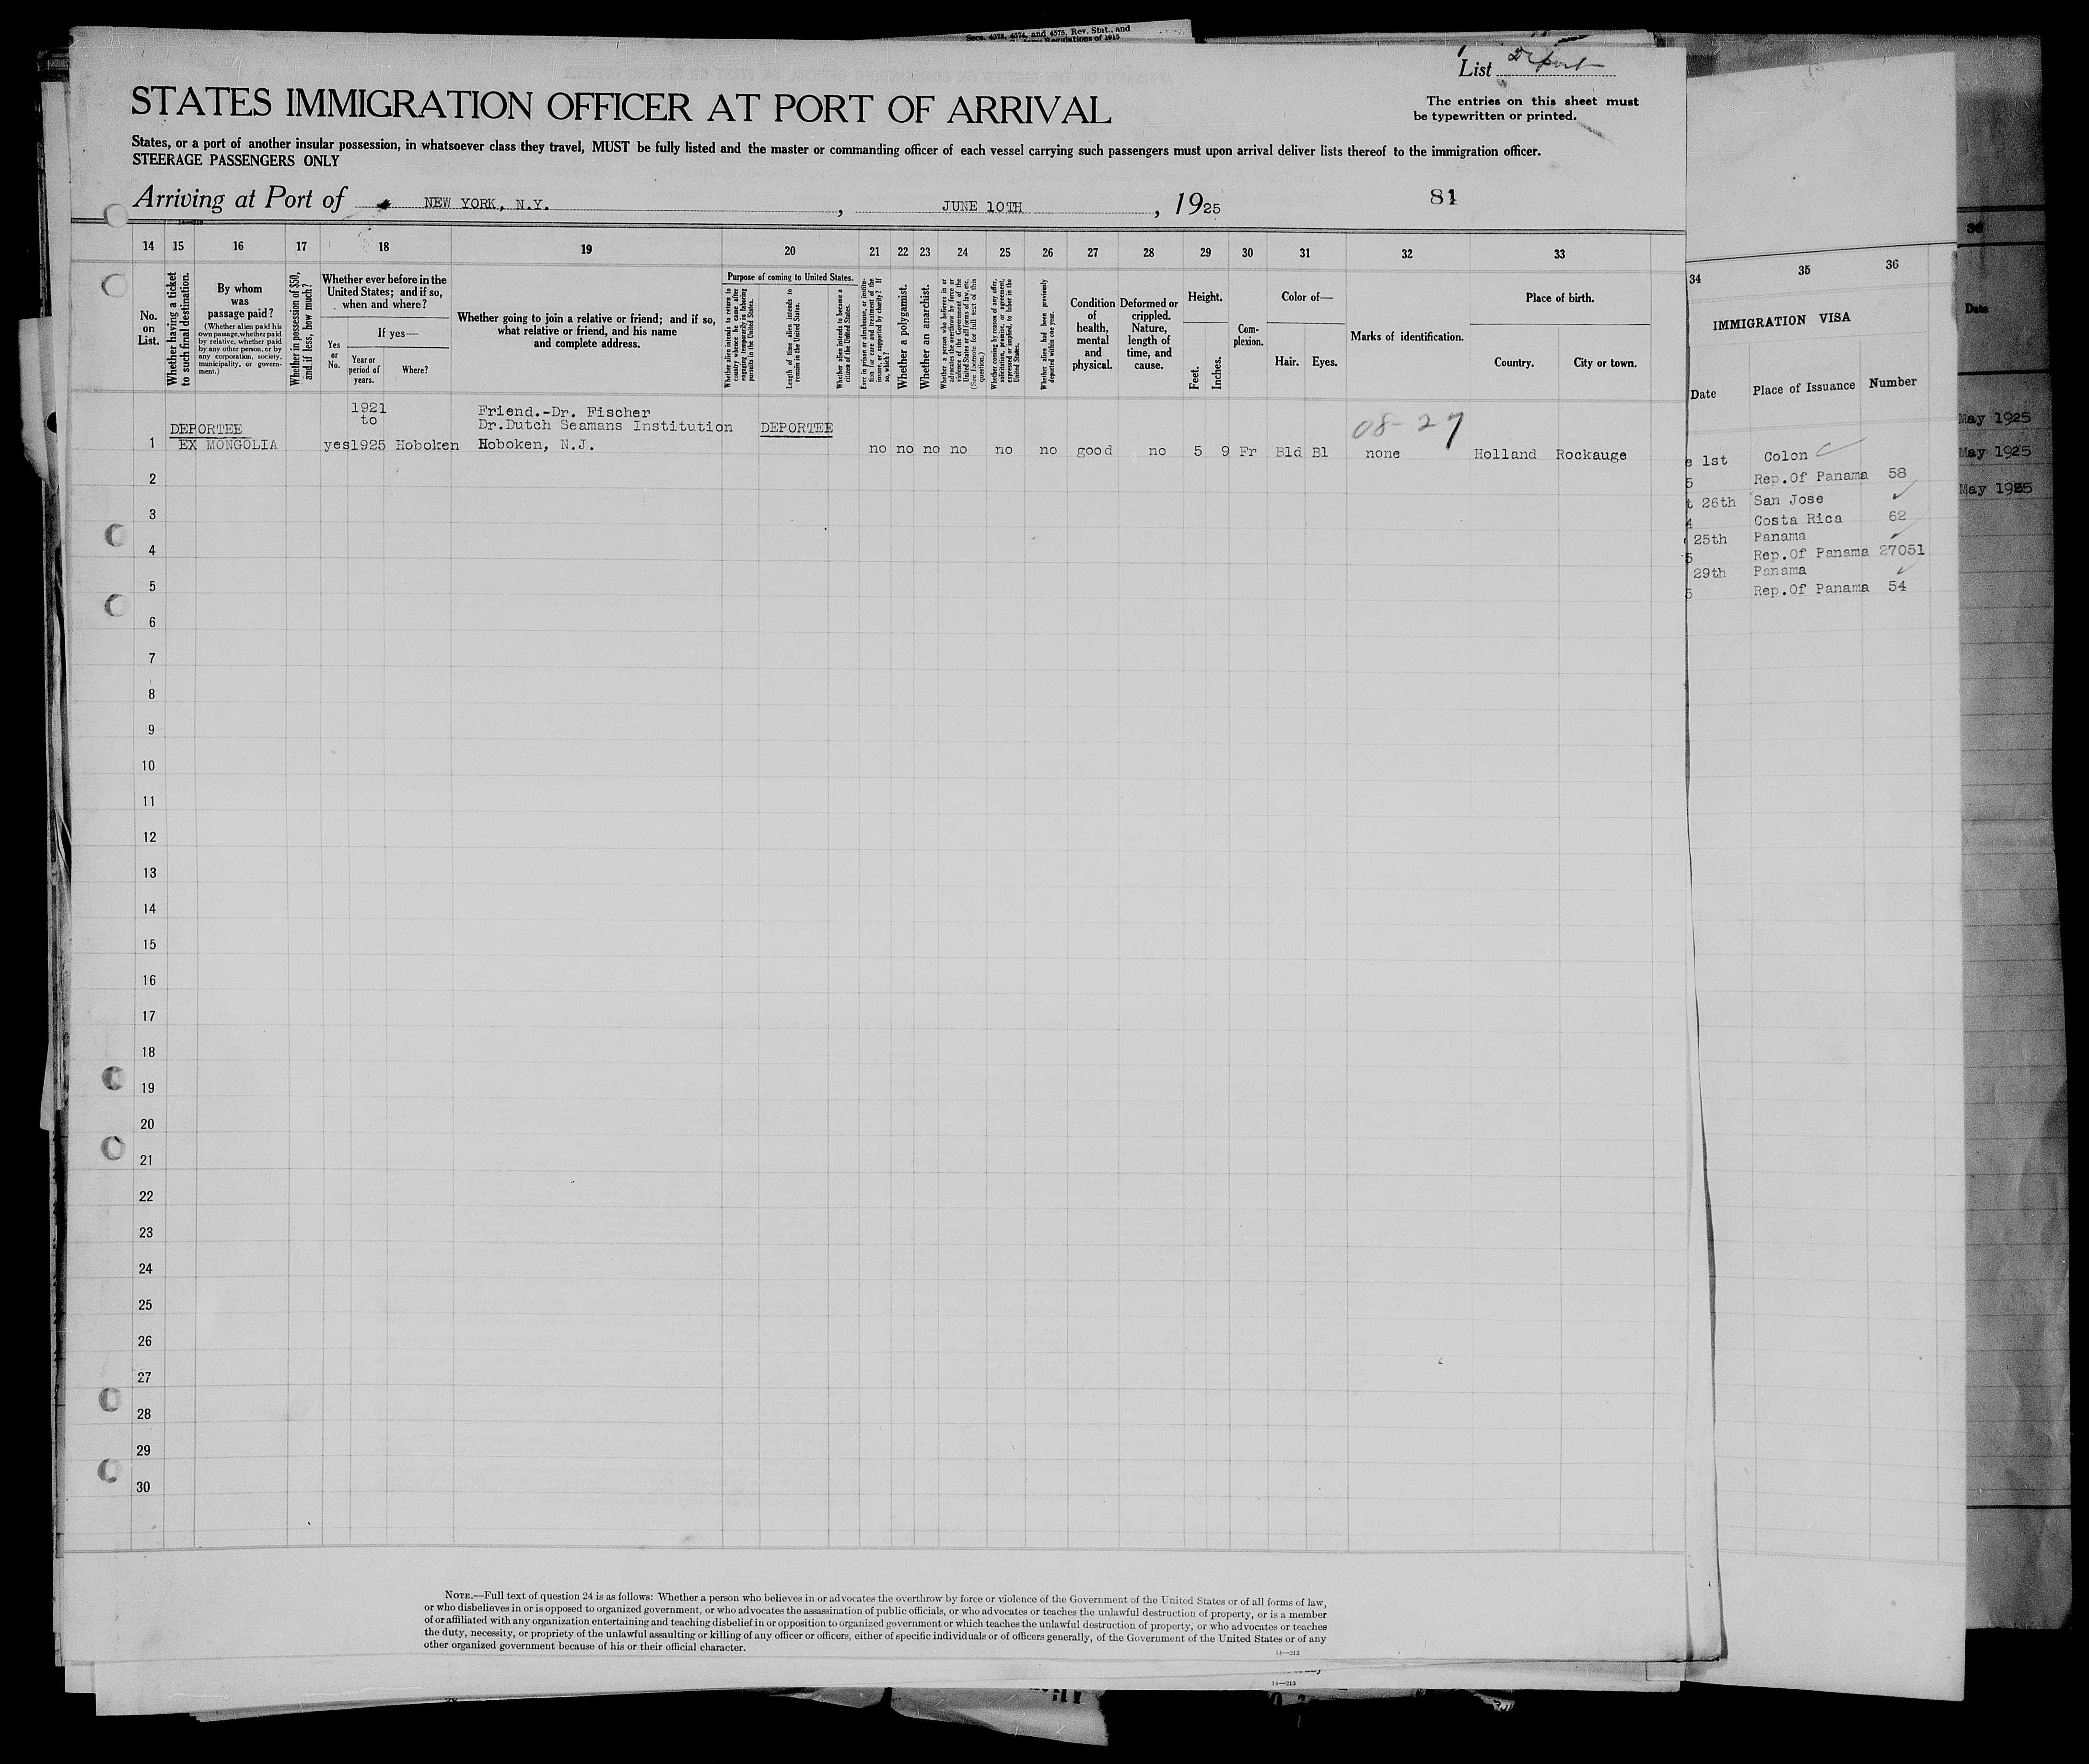 Secs. 4573, 4574, and 4575, Rev. Stat., and
Regulations of 1915
List Deport
STATES IMMIGRATION OFFICER AT PORT OF ARRIVAL
The entries on this sheet must
be typewritten or printed.
States, or a port of another insular possession, in whatsoever class they travel, MUST be fully listed and the master or commanding officer of each vessel carrying such passengers must upon arrival deliver lists thereof to the immigration officer.
STEERAGE PASSENGERS ONLY
Arriving at Port of NEW YORK, N.Y. , JUNE 10TH , 1925 81
14 15 16 17 18 19 20 21 22 23 24 25 26 27 28 29 30 31 32 33
No. on List.
Whether having a ticket to such final destination.
By whom was passage paid?
(Whether alien paid his own passage, whether paid by relative, whether paid by any other person, or by any corporation, society, municipality, or government.)
Whether in possession of $50, and if less, how much?
Whether ever before in the United States; and if so, when and where?
If yes—
Yes or No.
Year or period of years.
Where?
Whether going to join a relative or friend; and if so, what relative or friend, and his name and complete address.
Purpose of coming to United States.
Whether alien intends to return to country whence he came after engaging temporarily in laboring pursuits in the United States.
Length of time alien intends to remain in the United States.
Whether alien intends to become a citizen of the United States.
Ever in prison or almshouse, or institution for care and treatment of the insane, or supported by charity? If so, which?
Whether a polygamist.
Whether an anarchist.
Whether a person who believes in or advocates the overthrow by force or violence of the Government of the United States or all forms of law, etc. (See footnote for full text of this question.)
Whether coming by reason of any offer, solicitation, promise, or agreement, expressed or implied, to labor in the United States.
Whether alien had been previously deported within one year.
Condition of health, mental and physical.
Deformed or crippled. Nature, length of time, and cause.
Height.
Feet.
Inches.
Complexion.
Color of—
Hair.
Eyes.
Marks of identification.
Place of birth.
Country.
City or town.
1921
to
Friend.-Dr. Fischer
DEPORTEE Dr.Dutch Seamans Institution DEPORTEE 08-27
1 EX MONGOLIA yes1925 Hoboken Hoboken, N.J. no no no no no no good no 5 9 Fr Bld Bl none Holland Rockauge
2
3
4
5
6
7
8
9
10
11
12
13
14
15
16
17
18
19
20
21
22
23
24
25
26
27
28
29
30
NOTE.—Full text of question 24 is as follows: Whether a person who believes in or advocates the overthrow by force or violence of the Government of the United States or of all forms of law,
or who disbelieves in or is opposed to organized government, or who advocates the assassination of public officials, or who advocates or teaches the unlawful destruction of property, or is a member
of or affiliated with any organization entertaining and teaching disbelief in or opposition to organized government or which teaches the unlawful destruction of property, or who advocates or teaches
the duty, necessity, or propriety of the unlawful assaulting or killing of any officer or officers, either of specific individuals or of officers generally, of the Government of the United States or of any
other organized government because of his or their official character.
14—213
14—213
34 35 36
IMMIGRATION VISA
Date Place of Issuance Number
1st Colon
Rep.Of Panama 58
26th San Jose
Costa Rica 62
25th Panama
Rep.Of Panama 27051
29th Panama
Rep.Of Panama 54
36
Date
May 1925
May 1925
May 1925